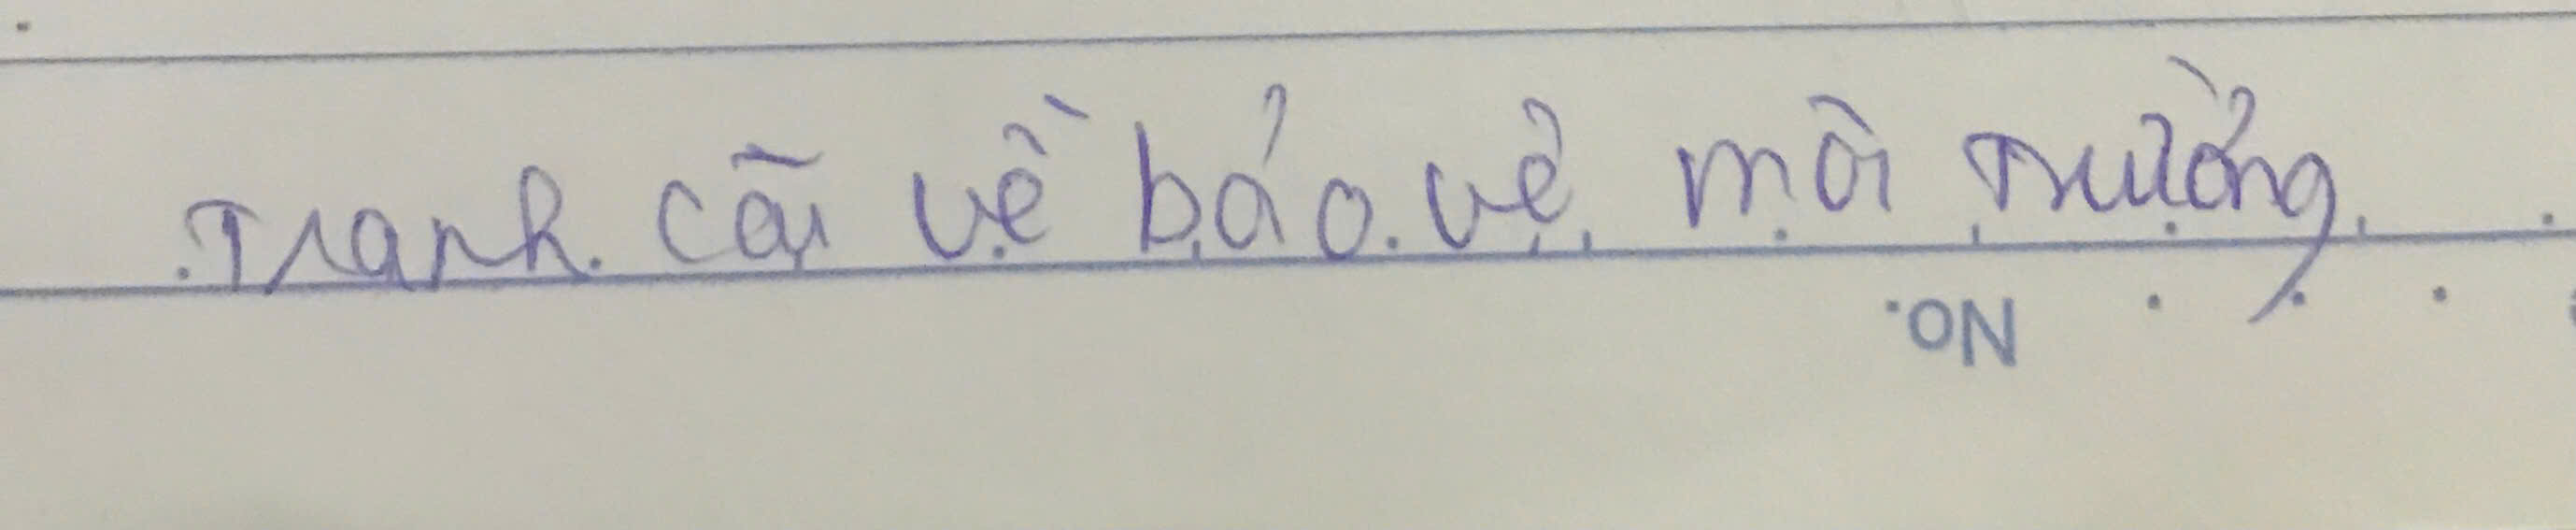 Tranh cãi về bảo vệ môi trường
No.